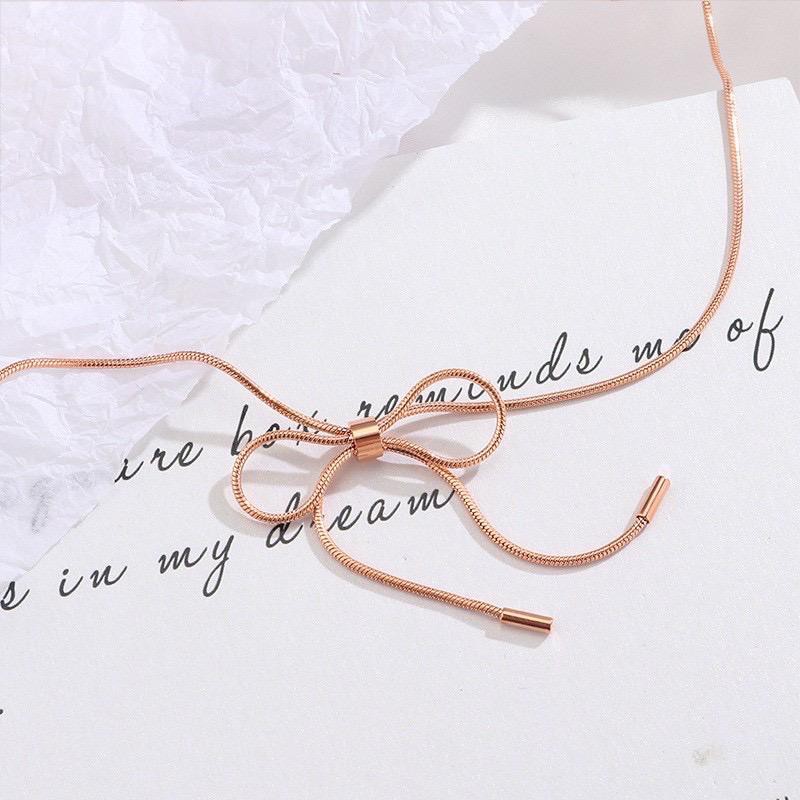 ire box reminds me of
s in my dream